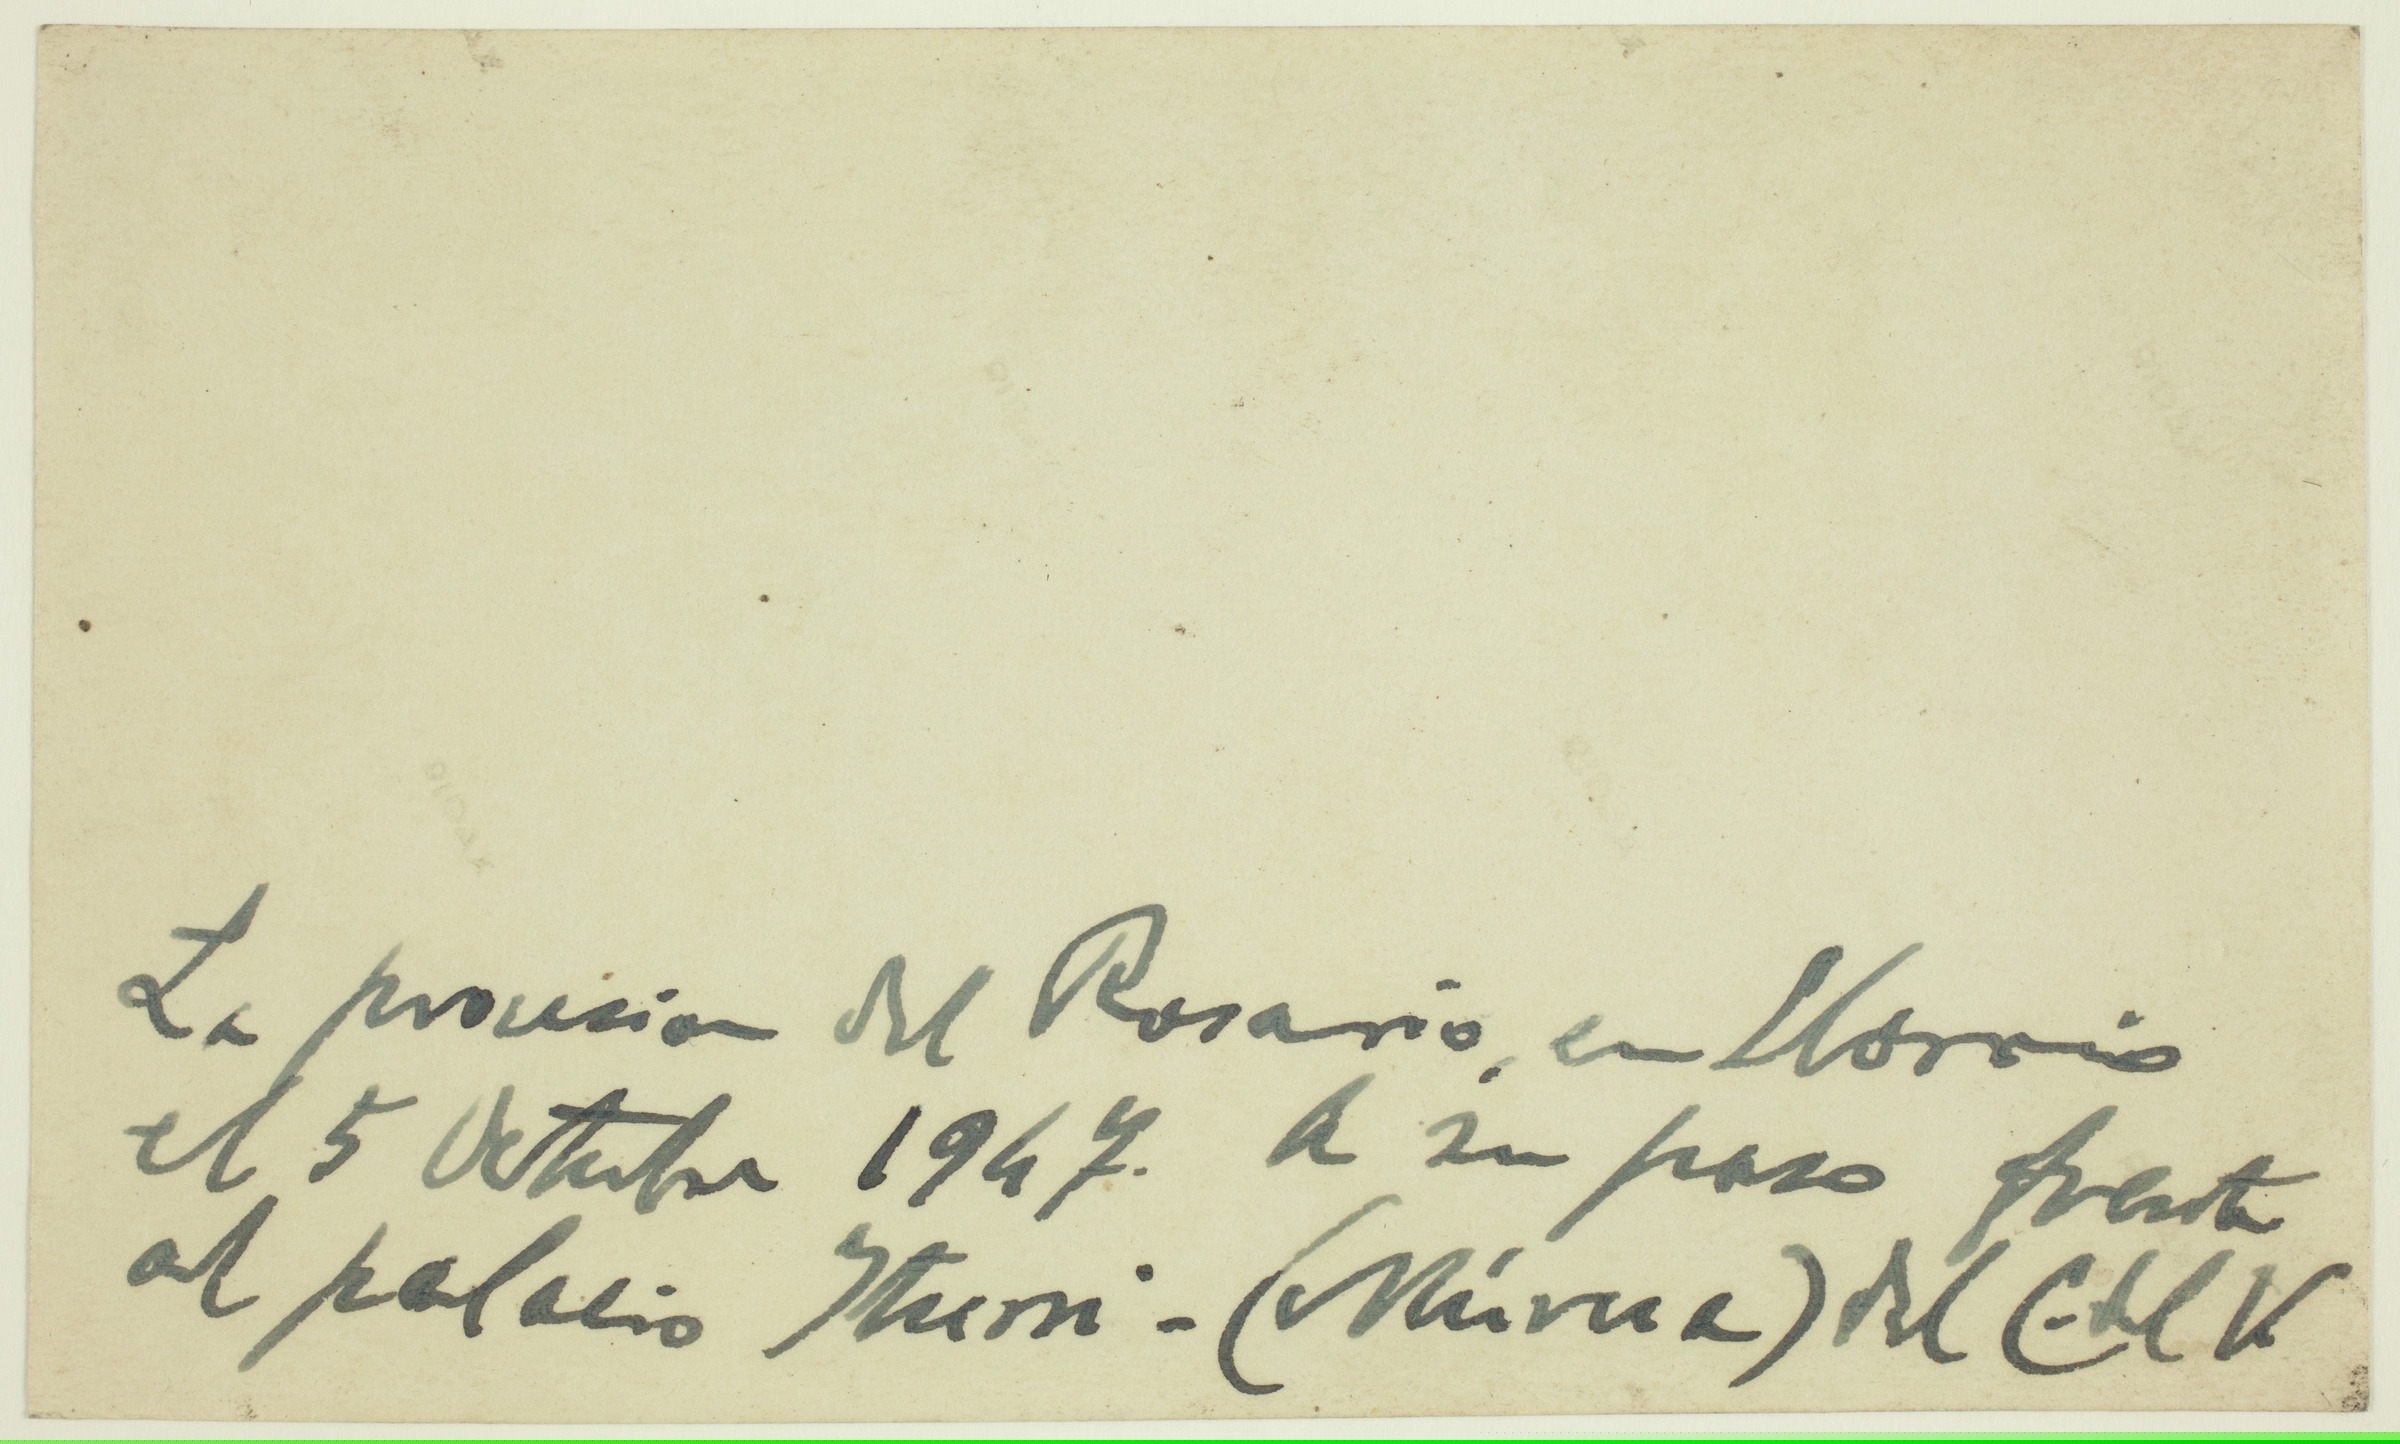 La procesion del Rosario, en Elorrio
el 5 Octubre 1947. A su paso frente
al palacio Iturri - (Múrua) del C. del V